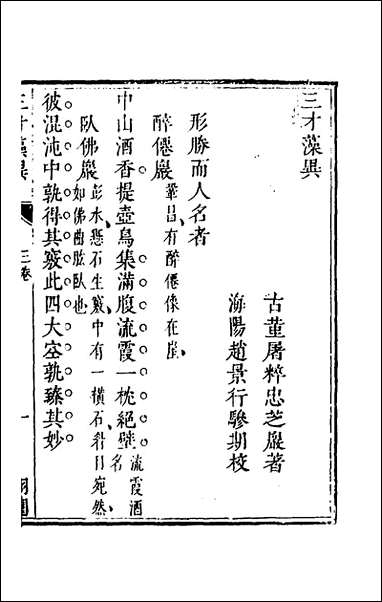 三才藻異
古董屠粹忠芝巖著
海陽趙景行驂期校
形勝而人名者
醉僊巖
鞏昌有醉僊像在崖
中山酒香提壺鳥集滿腹流霞一枕絕壁
流霞酒
名
臥佛巖
彭水懸石生竅中有一橫石眉目宛然
如佛曲肱臥也
彼混沌中孰得其竅此四大空孰臻其妙
三才藻異
三卷
一